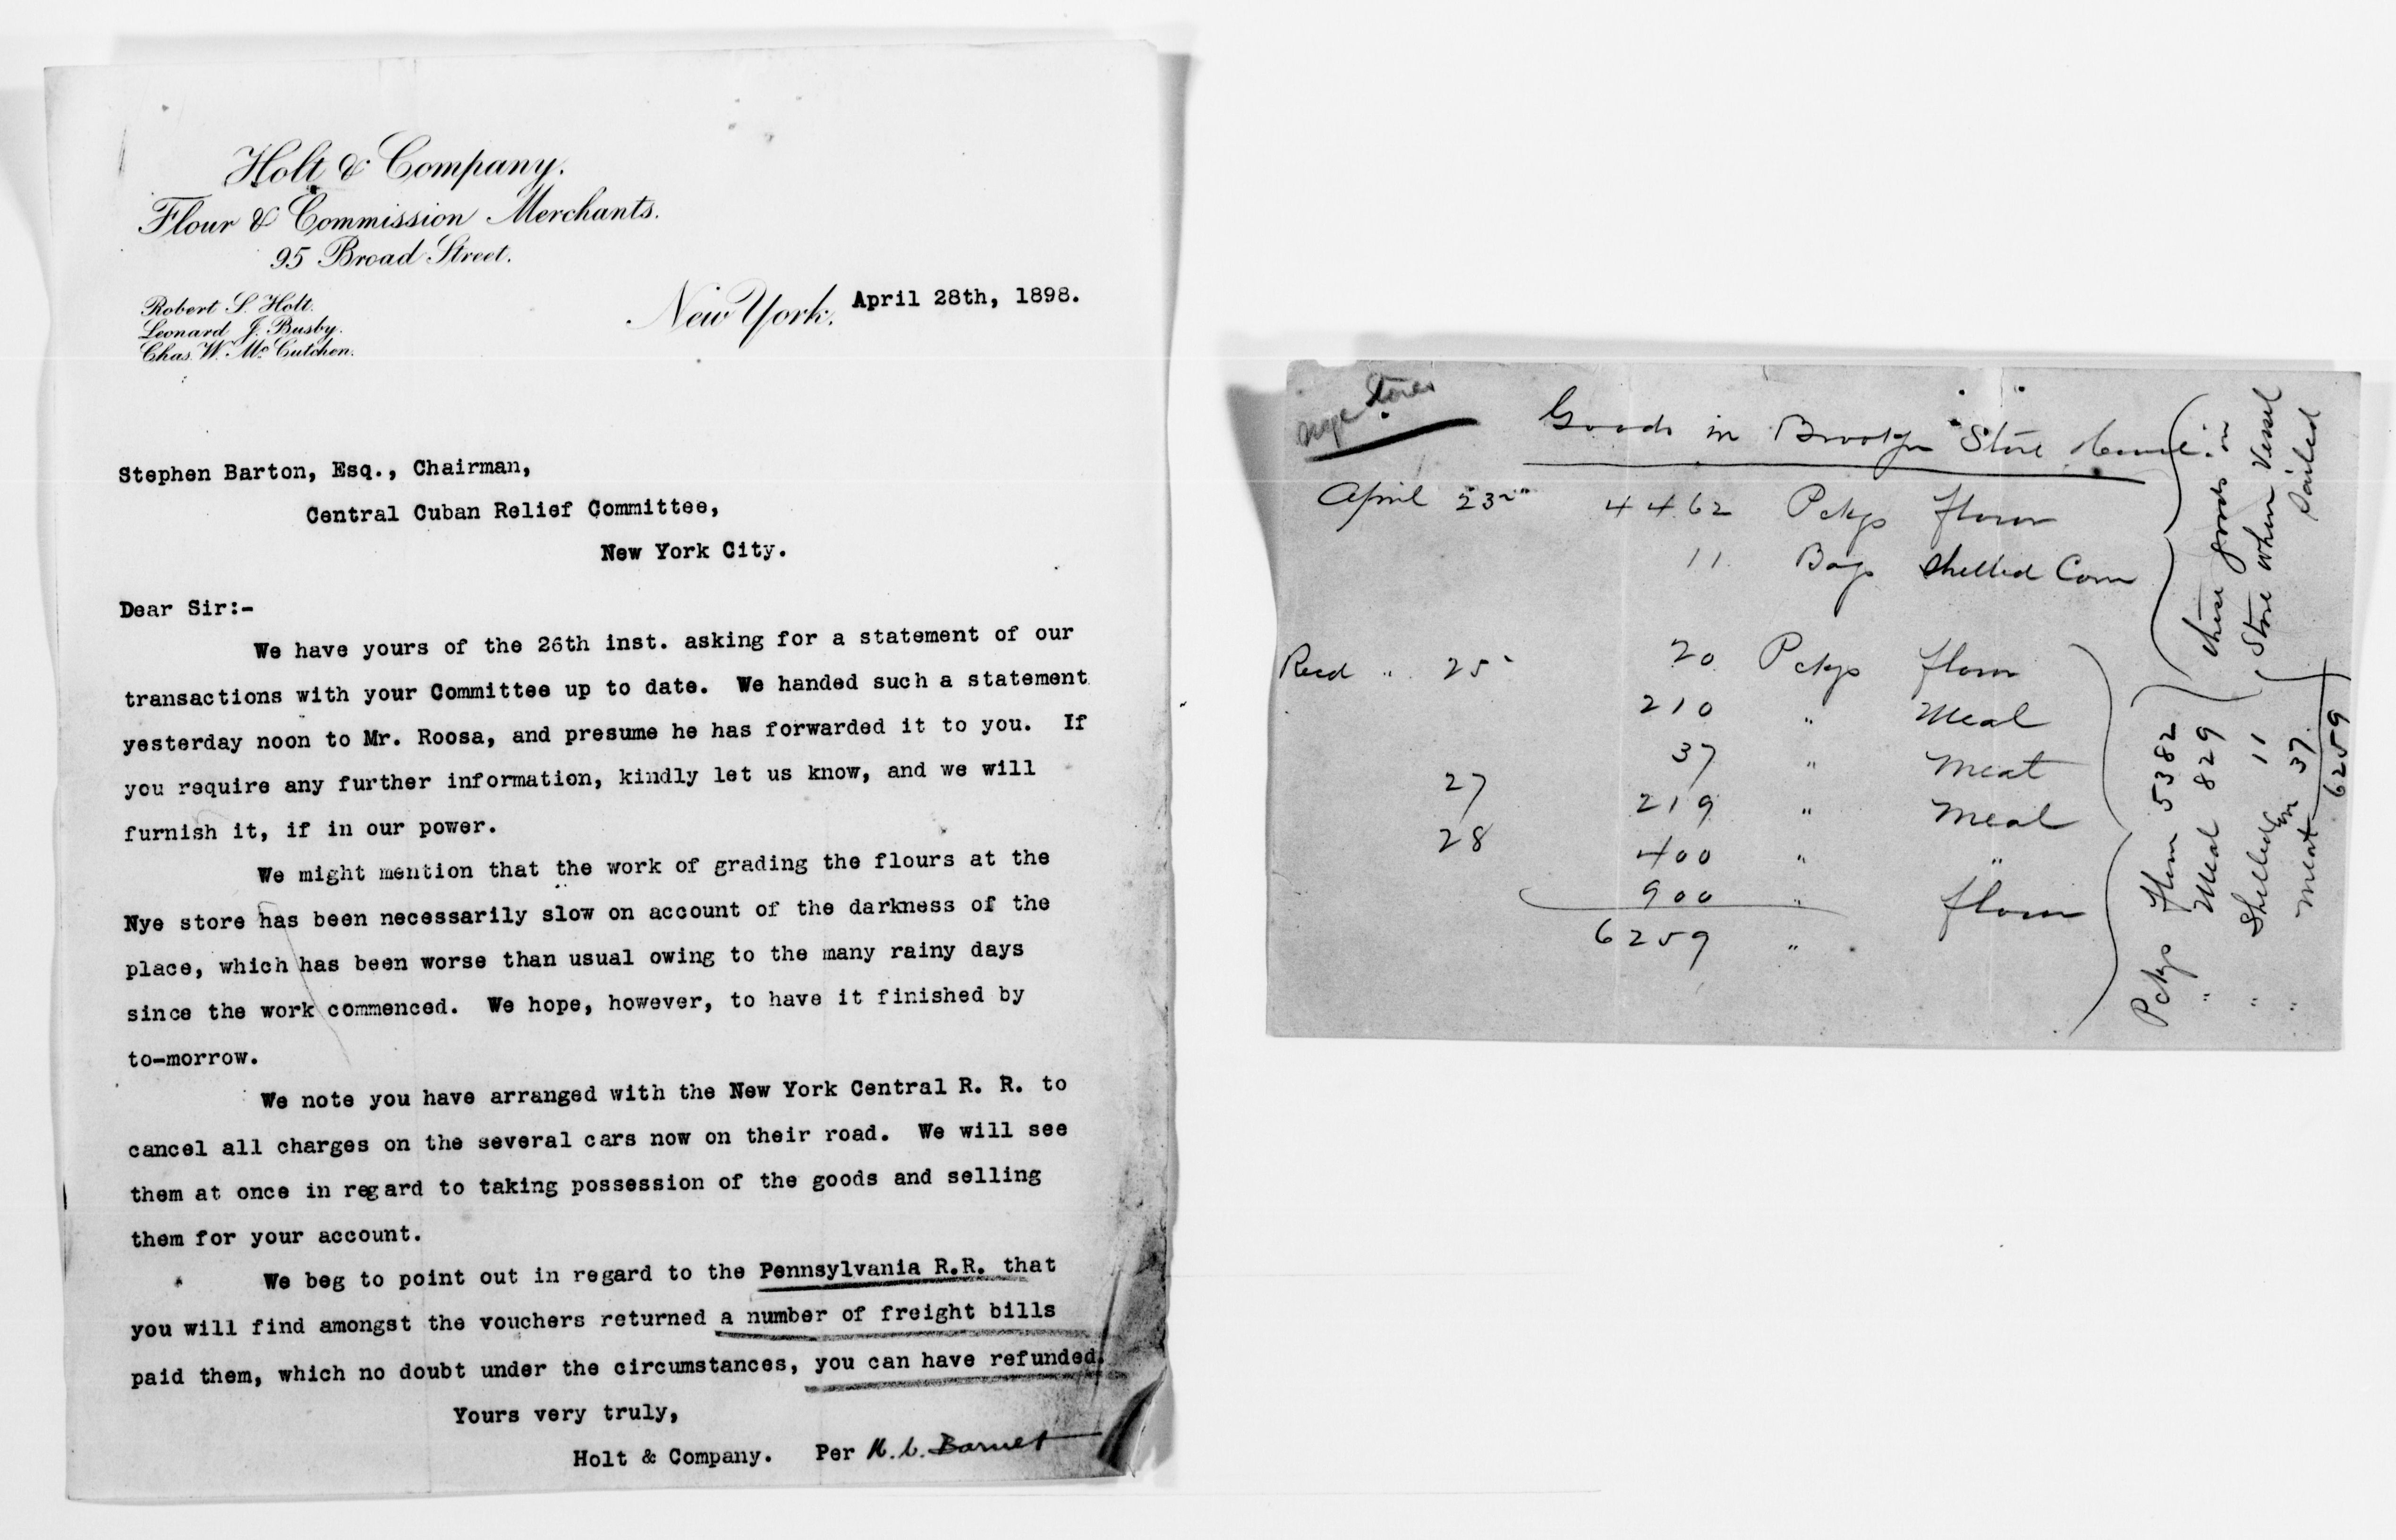 Holt & Company.
Flour & Commission Merchants.
95 Broad Street.
Robert S. Holt.
Leonard J. Busby.
Chas. W. Mc Cutchen.
New York, April 28th, 1898.
Stephen Barton, Esq., Chairman,
Central Cuban Relief Committee,
New York City.
Dear Sir:-
We have yours of the 26th inst. asking for a statement of our
transactions with your Committee up to date. We handed such a statement
yesterday noon to Mr. Roosa, and presume he has forwarded it to you. If
you require any further information, kindly let us know, and we will
furnish it, if in our power.
We might mention that the work of grading the flours at the
Nye store has been necessarily slow on account of the darkness of the
place, which has been worse than usual owing to the many rainy days
since the work commenced. We hope, however, to have it finished by
to-morrow.
We note you have arranged with the New York Central R. R. to
cancel all charges on the several cars now on their road. We will see
them at once in regard to taking possession of the goods and selling
them for your account.
We beg to point out in regard to the Pennsylvania R.R. that
you will find amongst the vouchers returned a number of freight bills
paid them, which no doubt under the circumstances, you can have refunded.
Yours very truly,
Holt & Company. Per H. C. Barnet
Nye Stores
Goods in Brooklyn Store House.
April 23rd 4462 Pckgs flour
11 Bags Shelled Corn
Recd " 25 20 Pckgs flour
210 " Meal
37 " Meat
27 219 " Meal
28 400 " "
900 " flour
6259 "
these goods in
Store when Vessel
Sailed
Pckgs flour 5382
" Meal 829
" Shelled Corn 11
" Meat 37
6259